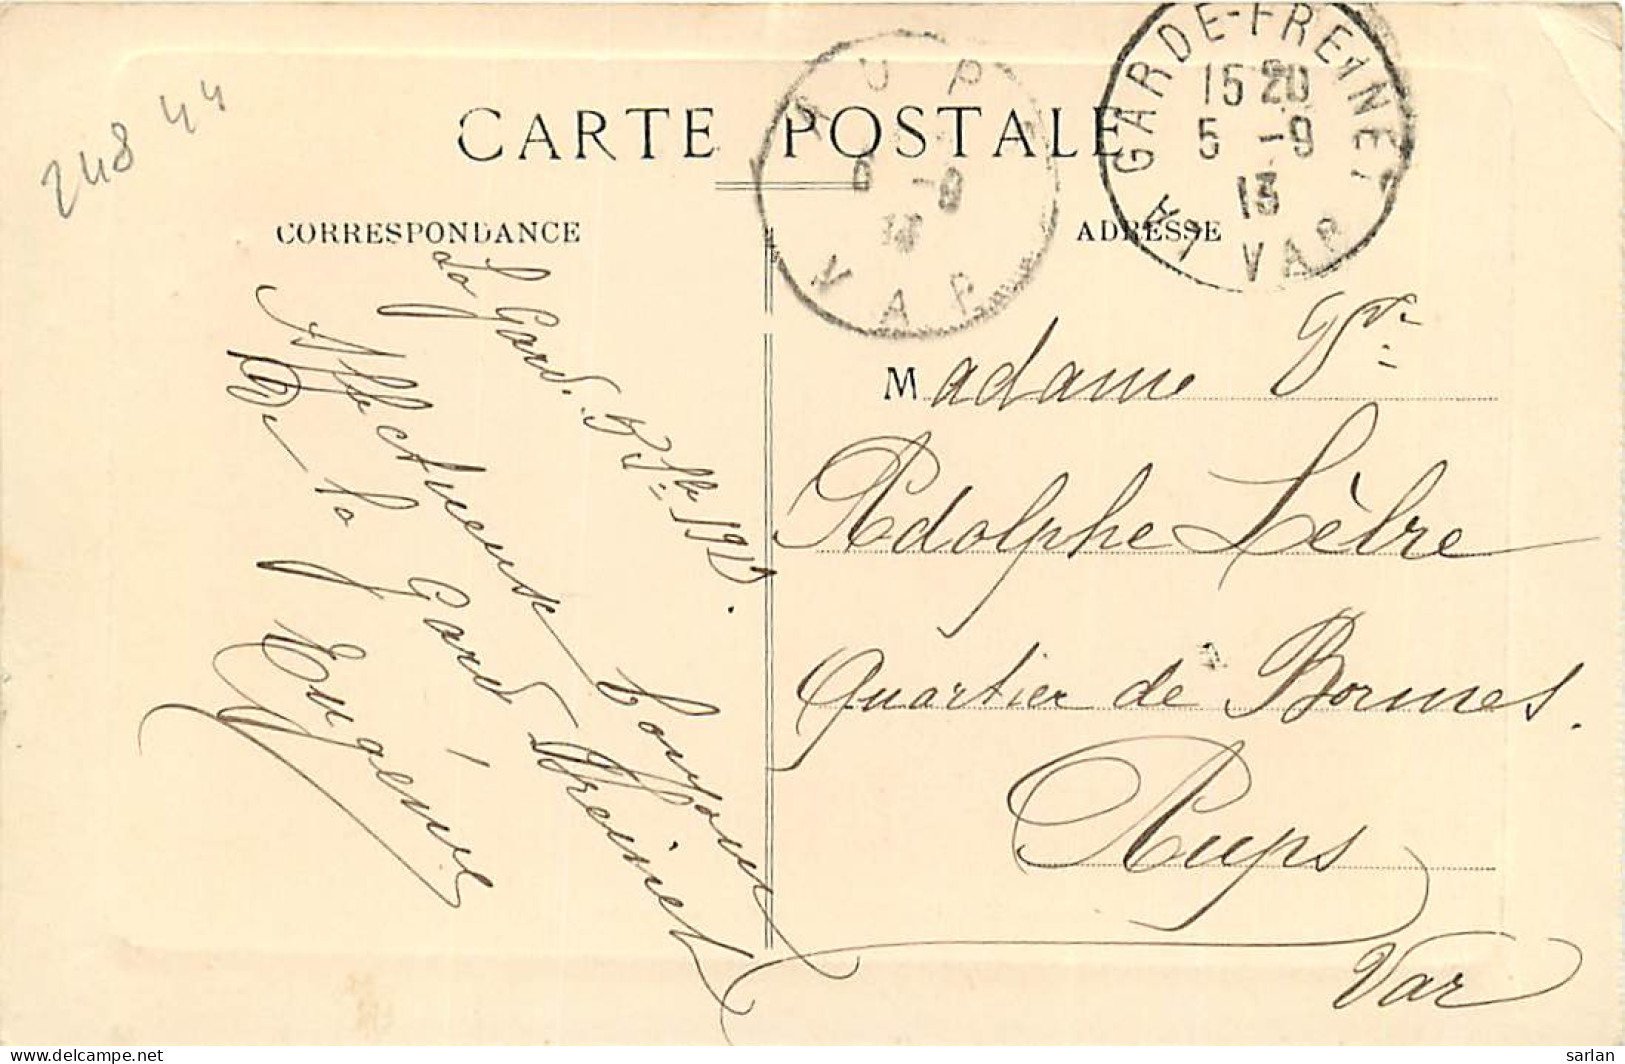 248 44
CARTE POSTALE
CORRESPONDANCE
ADRESSE
AUPS
6 -9
13
VAR
LA GARDE-FREINET
15 20
5 -9
13
VAR
La Gard. 5 7bre 1913.
Affectueux bonjour
De la Gard Freinet
Eugénie
Madame Vve
Adolphe Lèbre
Quartier de Bormes.
Aups
Var
delcampe.net
sarlan